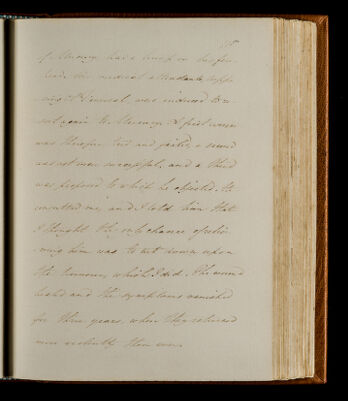 of Mercury had a lump on his fore
head. The medical attendants, suppo
sing it Venereal, was induced to re
sort again to Mercury. A first course
was therefore tried and failed, a second
was not more successful, and a third
was proposed to which he objected. He
consulted me, and I told him that
I thought the only chance of relie
ving him was to cut down upon
the tumour, which I did. The wound
healed and the symptoms vanished
for three years, when they returned
more violently than ever.